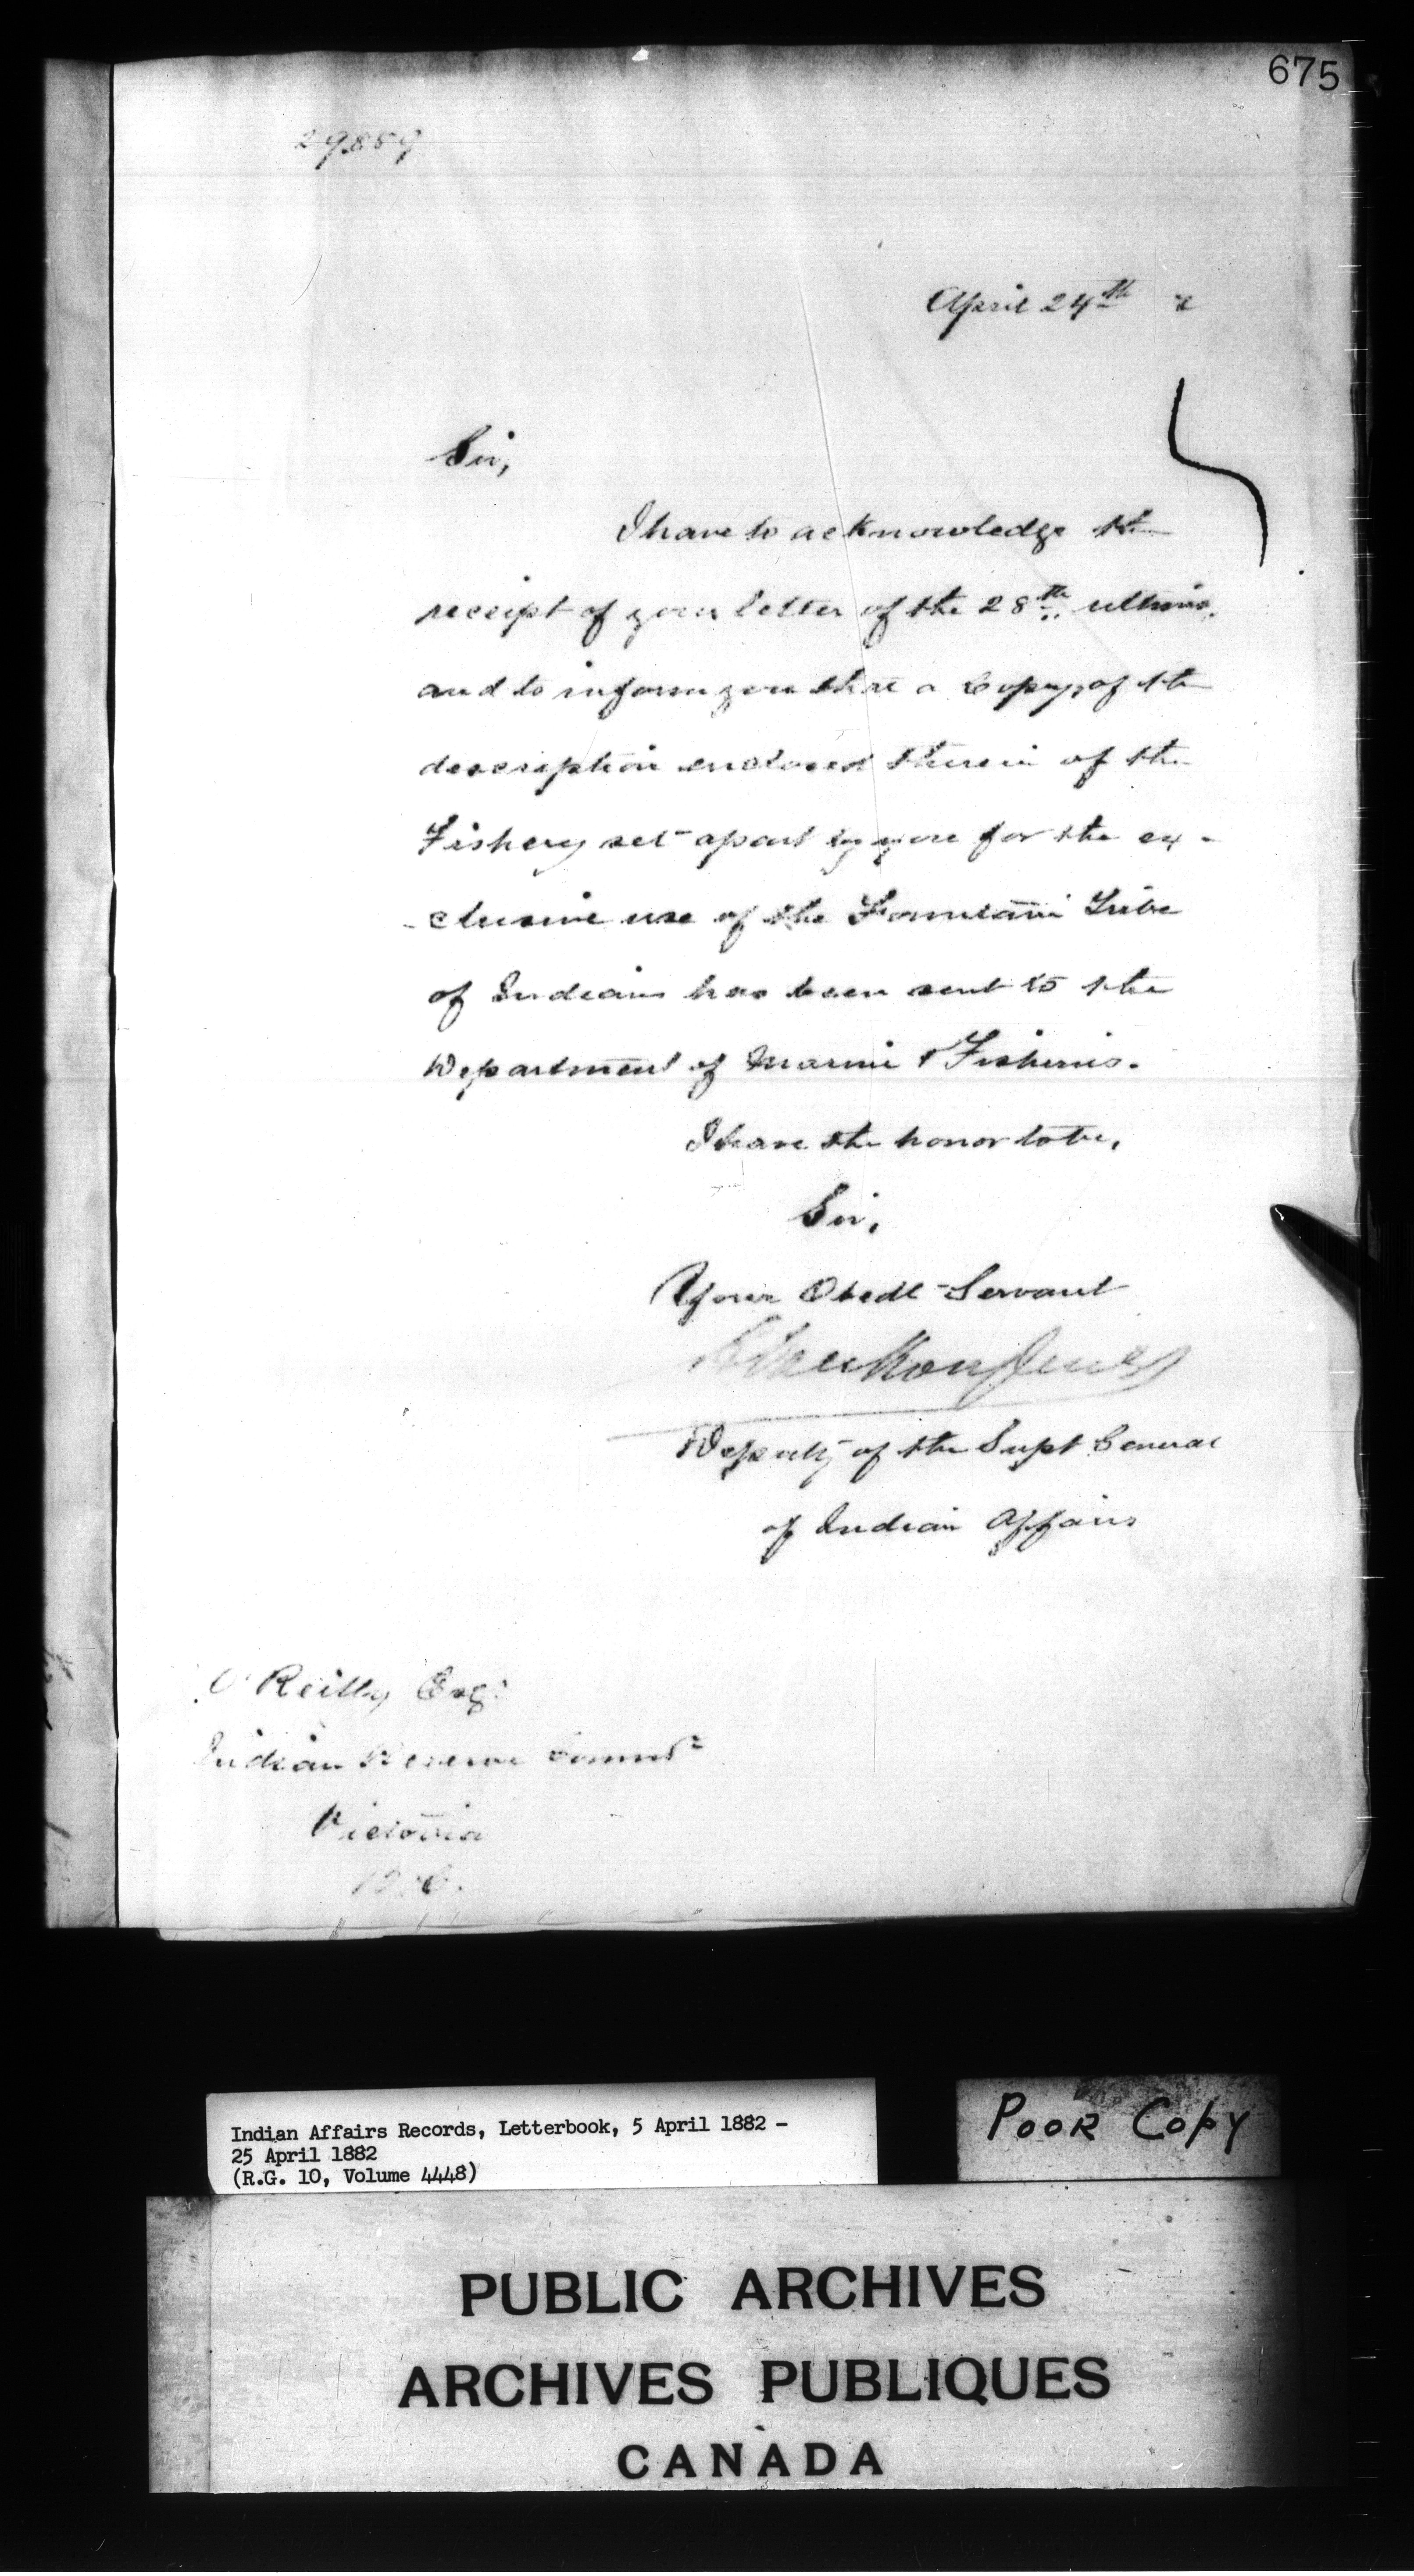 675
29889
April 24th 2
Sir,
I have to acknowledge the
receipt of your letter of the 28th ultimo,
and to inform you that a Copy, of the
description enclosed therein of the
Fishery set apart by you for the ex-
-clusive use of the Tribe
of Indians has been sent to the
Department of Marine & Fisheries.
I have the honor to be,
Sir,
Your Obedt Servant
Deputy of the Supt General
of Indian Affairs
O'Reilly Esq:
Indian Reserve Commr
Victoria
B.C.
Indian Affairs Records, Letterbook, 5 April 1882 -
25 April 1882
(R.G. 10, Volume 4448)
POOR COPY
PUBLIC ARCHIVES
ARCHIVES PUBLIQUES
CANADA